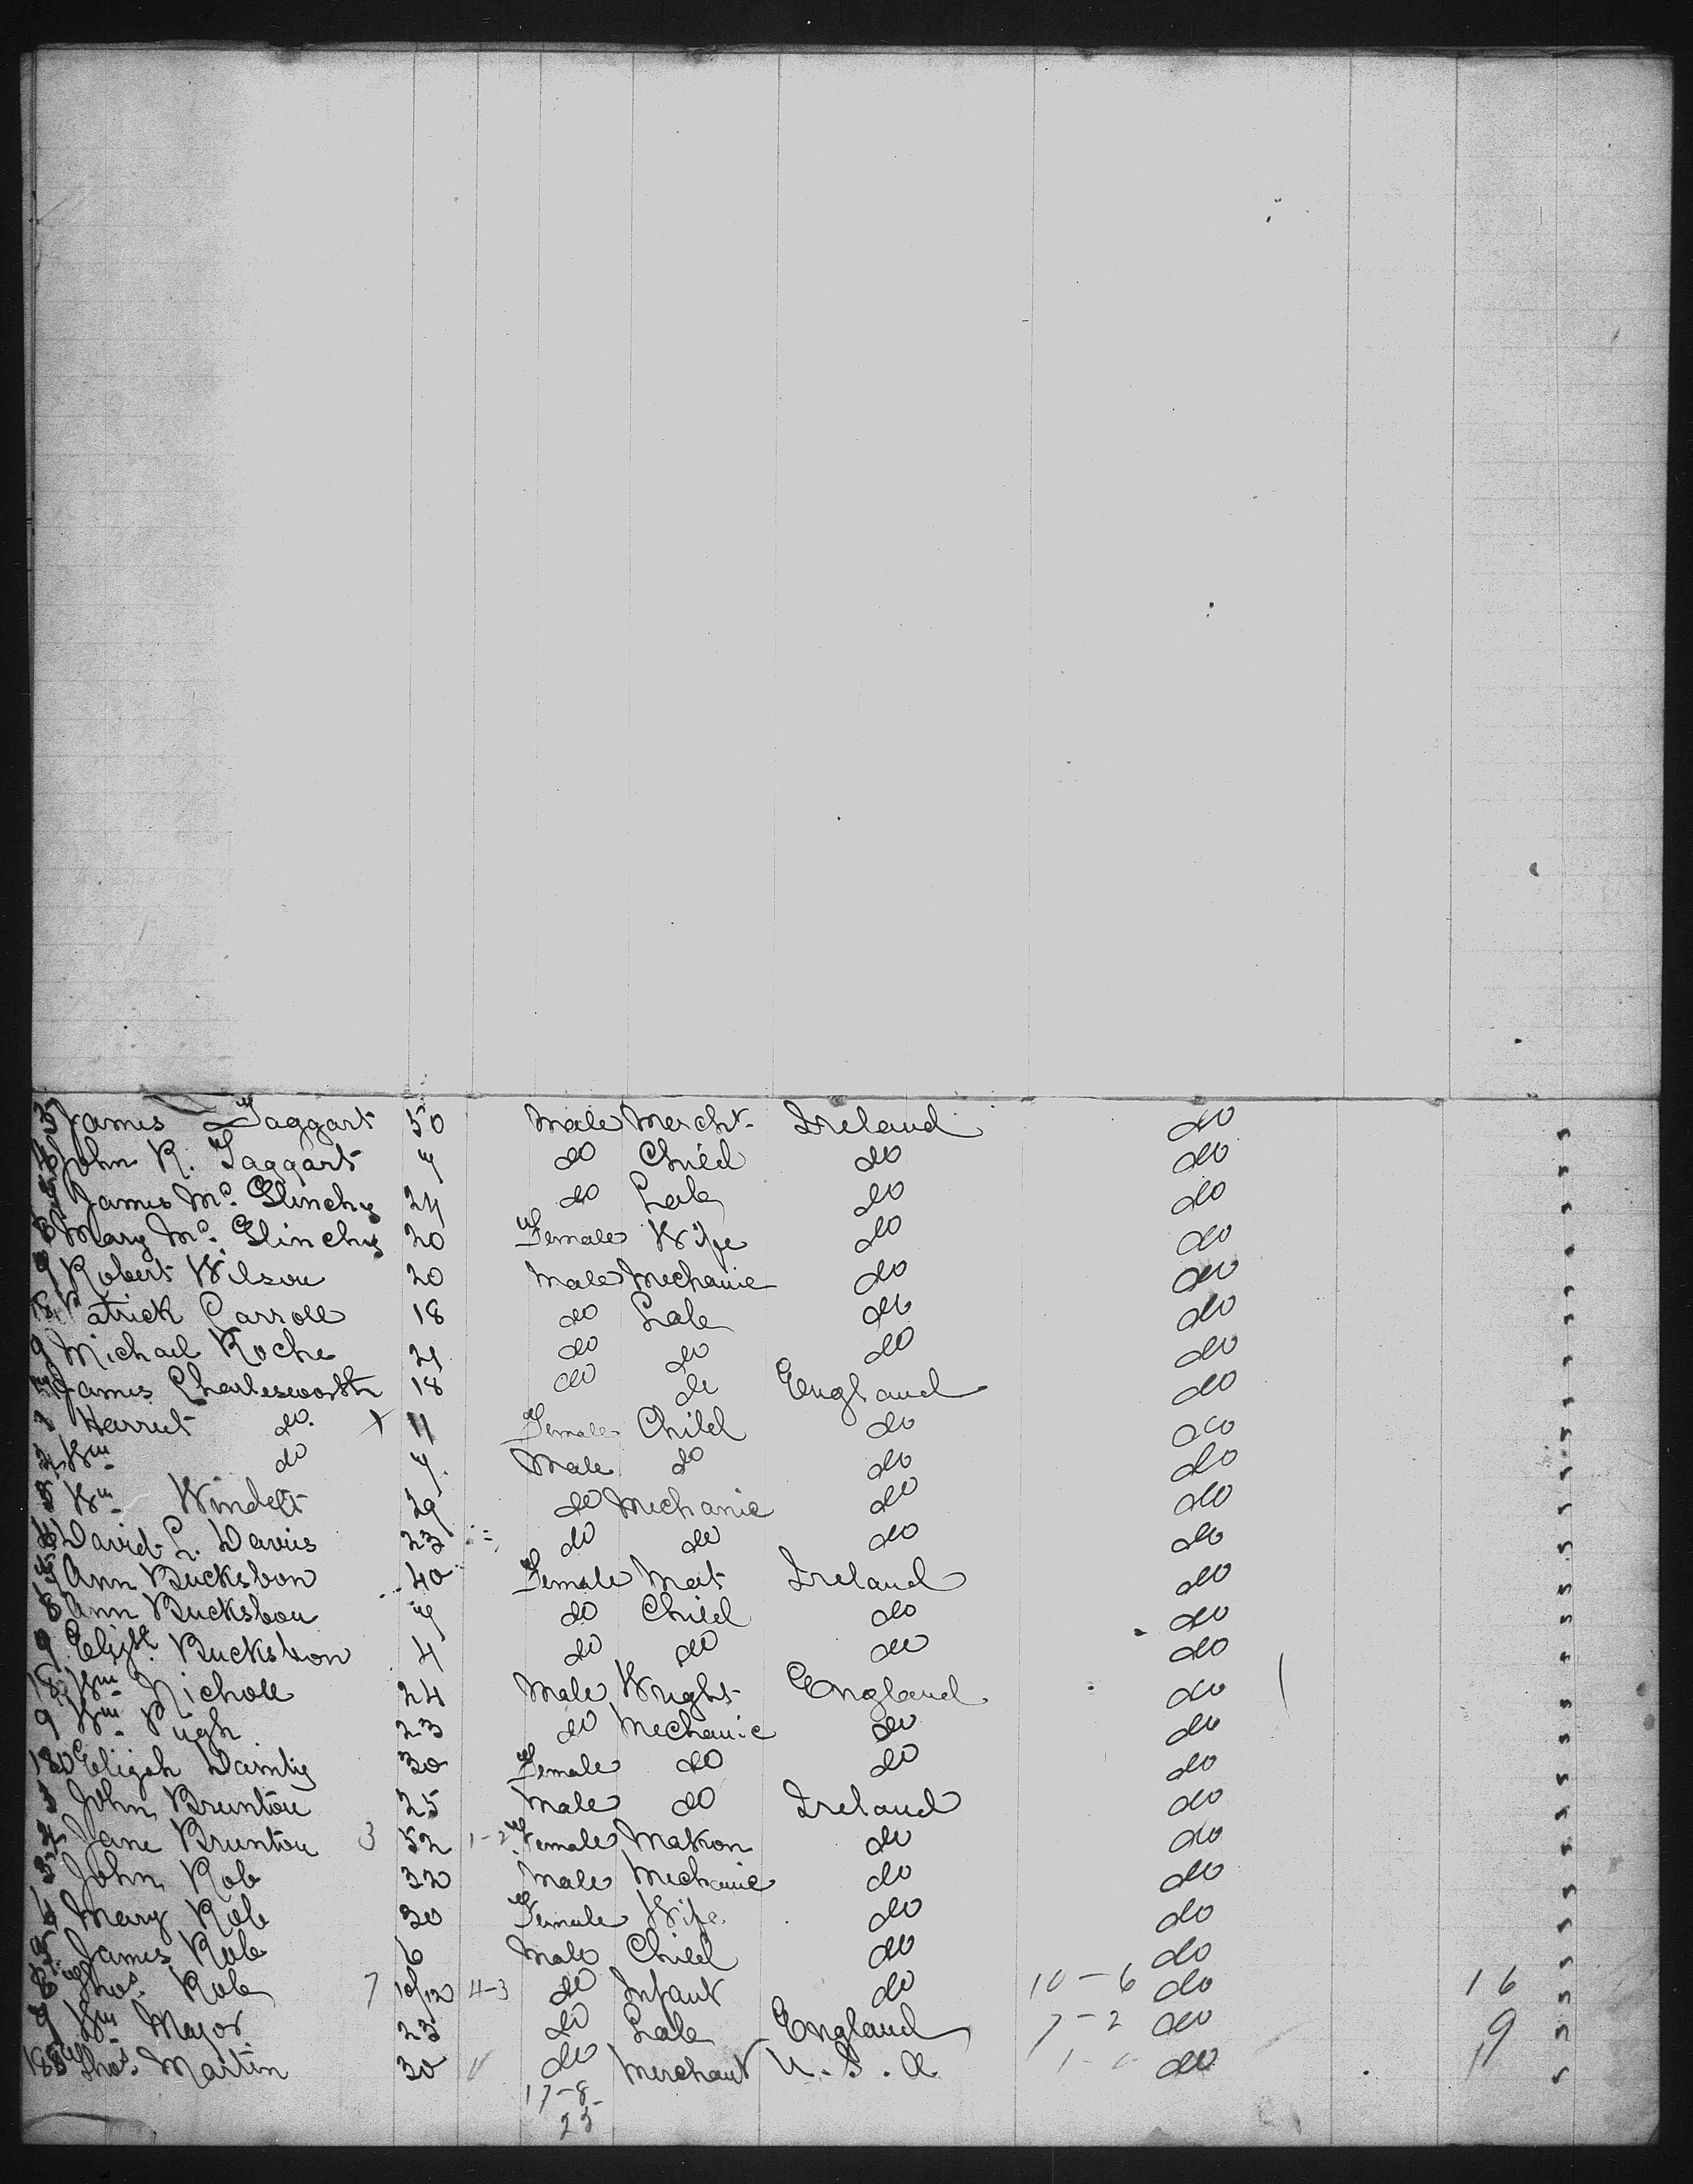 3 James Taggart 50 Male Mercht. Ireland do
4 John R. Taggart 7 do Child do do
James Mc. Glinchy 24 do Lab do do
8 Mary Mc. Glinchy 20 Female Wife do do
9 Robert Wilson 20 Male Mechanic do do
Patrick Carroll 18 do Lab do do
9 Michael Roche 21 do do do do
James Charlesworth 18 do do England do
1 Harriet do. x 11 Female Child do do
2 Wm do 7. Male do do do
3 Wm Windett 29 do Mechanic do do
4 David L. Davis 23 do do do do
Ann Bucksbon 40 Female Mat Ireland do
8 Ann Bucksbon 7 do Child do do
9 Elizth. Bucksbon 4 do do do do
Wm Nicholl 24 Male Wright England do
9 Wm Pugh 23 do Mechanic do do
180 Elijah Damty 30 Female do do do
John Brunton 25 Male do Ireland do
2 Jane Brunton 3 52 1-2 Female Matron do do
3 John Rob 32 Male Mechanic do do
4 Mary Rob 30 Female Wife do do
James Rob 6 Male Child do do
8 Thos. Rob 7 10/12 4-3 do Infant do 10-6 do 16
9 Wm Major 23 do Lab England 7-2 do 9
Thos. Martin 30 do Merchant U.S.A. do
17-8
25